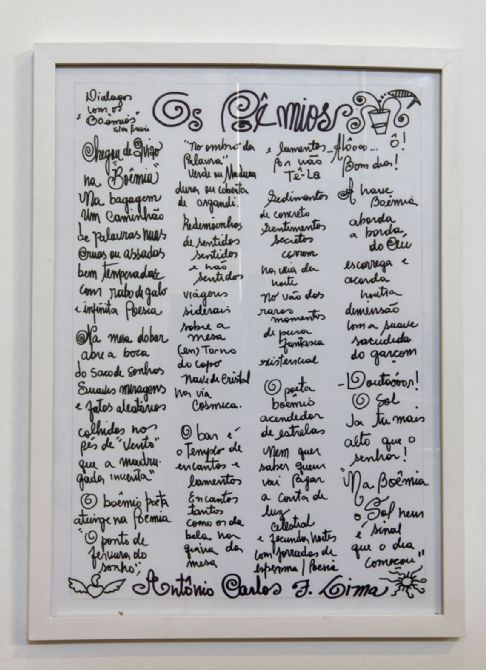 Dialogos
com os
"Boêmios"
Os Pêmios
na "Boêmia"
Na bagagem
Um caminhão
de palavras nuas
cruas ou assadas
bem temperadas
com rabo de galo
e infinita Poesia
Na mesa do bar
abre a boca
do saco de sonhos
Suaves miragens
e fatos aleatórios
colhidos nos
pés de "vento"
que a madru-
gada inventa"
O boêmio poeta
atinge na Poêmia
"O ponto de
fervura do
sonho",
"No ombro da
Palavra"
Verde ou Madura
dura ou coberta
de organdi.
Redemoinhos
de sentidos
sentidos
e não
sentidos
viagens
siderais
sobre a
mesa
(en) Torno
do copo
Nave de Cristal
na via
Cósmica.
O bar é
o Templo de
encantos e
lamentos
Encantos
tantos
como os da
bela na
quina da
mesa
e lamentos
por não
Tê-la
Sedimentos
de concreto
Sentimentos
secretos
correm
na veia da
noite
no vão dos
raros
momentos
de pura
fantasia
existencial
O poeta
boêmio
acendedor
de estrelas
Nem quer
saber quem
vai pagar
a conta de
luz
celestial
e fecundas noites
com jorradas de
esperma / Poesia
Alôoo... ô!
Bom dia!
A nave
Boêmia
aborda
a borda
do Céu
escorrega e
acorda
noutra
dimensão
com a suave
sacudida
do garçom
- Doutoôor!
O Sol
Já tá mais
alto que o
senhor!
"Na Boêmia
o Sol nem
é sinal
que o dia
começou"
Antônio Carlos F. Lima